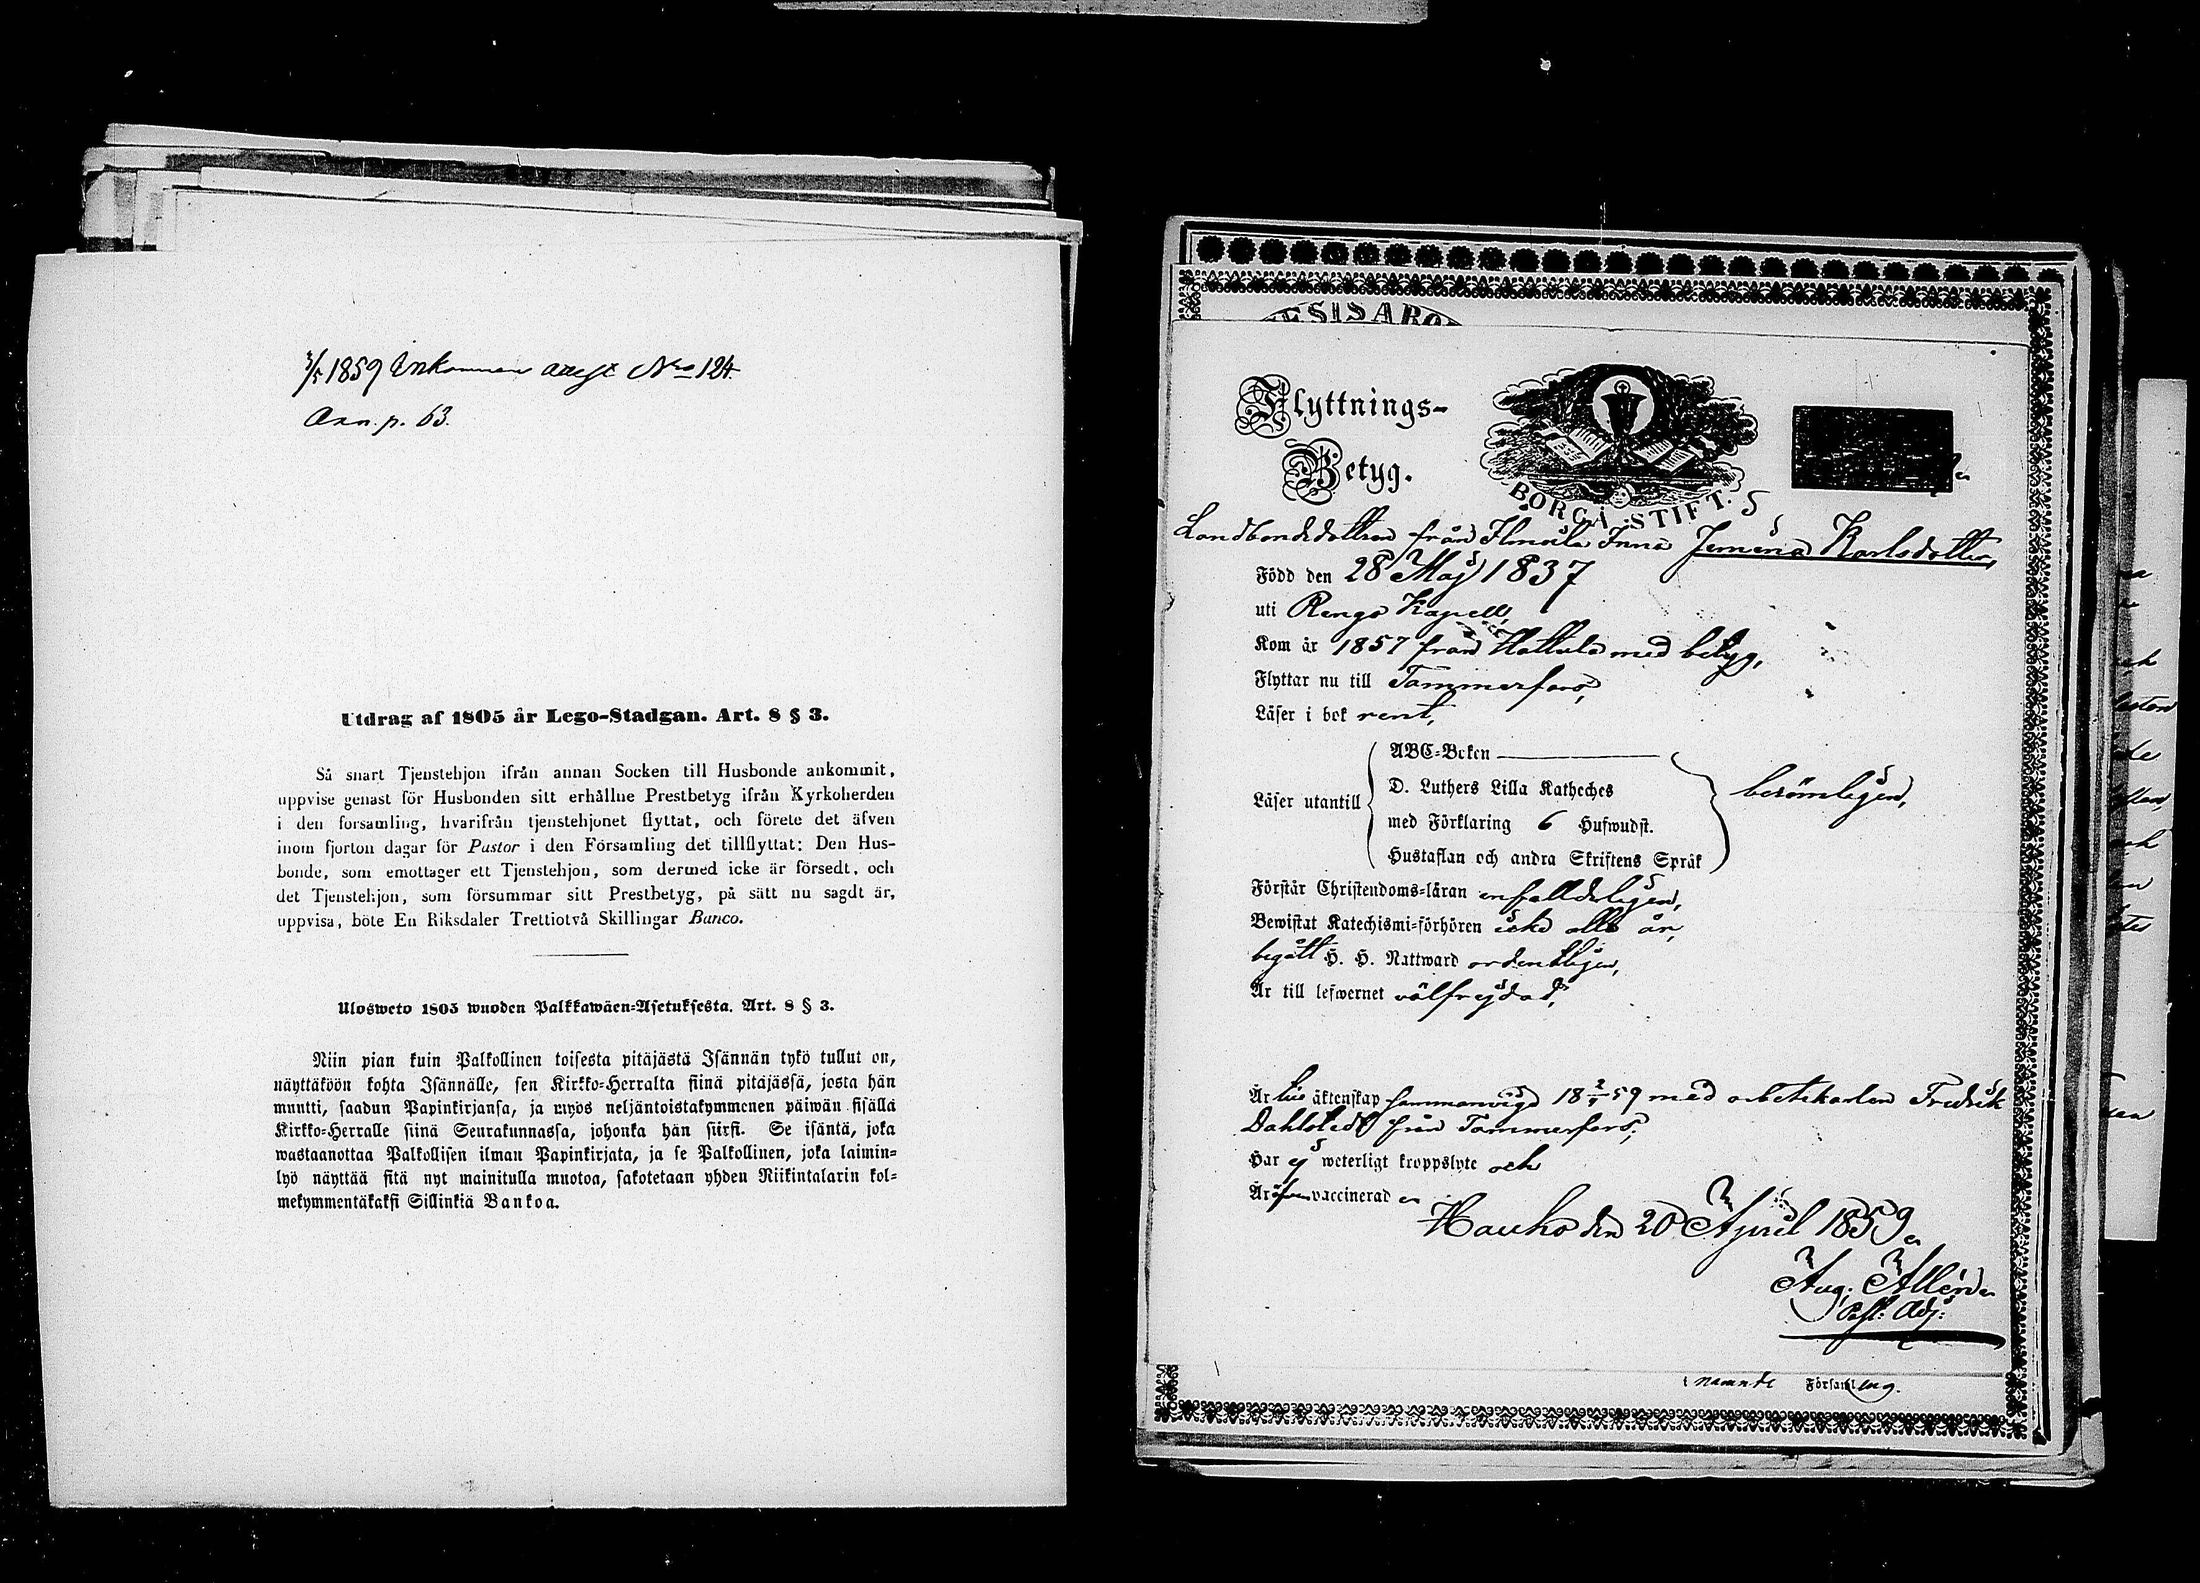 3/5 1859 Inkommen attest No 124.
Ann. p. 63.
Utdrag af 1805 år Lego-Stadgan. Art. 8 § 3.
Så snart Tjenstehjon ifrån annan Socken till Husbonde ankommit,
uppvise genast för Husbonden sitt erhållne Prestbetyg ifrån Kyrkoherden
i den forsamling, hvarifrån tjenstehjonet flyttat, och förete det äfven
inom fjorton dagar för Pastor i den Församling det tillflyttat: Den Hus-
bonde, som emottager ett Tjenstehjon, som dermed icke är försedt, och
det Tjenstehjon, som försummar sitt Prestbetyg, på sätt nu sagdt är,
uppvisa, böte En Riksdaler Trettiotvå Skillingar Banco.
Ulosweto 1805 wuoden Palkkawäen=Asetuksesta. Art. 8 § 3.
Niin pian kuin Palkollinen toisesta pitäjästä Isännän tykö tullut on,
näyttäköön kohta Isännälle, sen Kirkko=Herralta siinä pitäjässä, josta hän
muutti, saadun Papinkirjansa, ja myös neljäntoistakymmenen päiwän sisällä
Kirkko=Herralle siinä Seurakunnassa, johonka hän siirsi. Se isäntä, joka
wastaanottaa Palkollisen ilman Papinkirjata, ja se Palkollinen, joka laimin=
lyö näyttää sitä nyt mainitulla muotoa, sakotetaan yhden Riikintalarin kol=
mekymmentäkaksi Sillinkiä Bankoa.
Flyttnings-
Betyg.
BORGÅ STIFT.
Landbondedottren från Ilmoila Inna Jemina Karlsdotter,
Född den 28 Maj 1837
uti Rengo Kapell,
Kom år 1857 från Hattula med betyg,
Flyttar nu till Tammerfors,
Läser i bok rent,
ABC=Boken
Läser utantill D. Luthers Lilla Katheches berömligen,
med Förklaring 6 Hufwudst.
Hustaflan och andra Skriftens Språk
Förstår Christendoms=läran enfalldeligen,
Bewistat Katechismi=förhören icke alla år,
begått H. H. Nattward ordentligen,
Är till lefwernet välfrejdad,
Är äktenskap sammanvigd 18 2/4 59 med arbetskarlen Fredrik
Dahlstedt från Tammerfors,
Har ej weterligt kroppslyte och
Är äfven vaccinerad
Hauho den 20 April 1859
Aug. Allén
Past. Adj:
nämnde Församling.